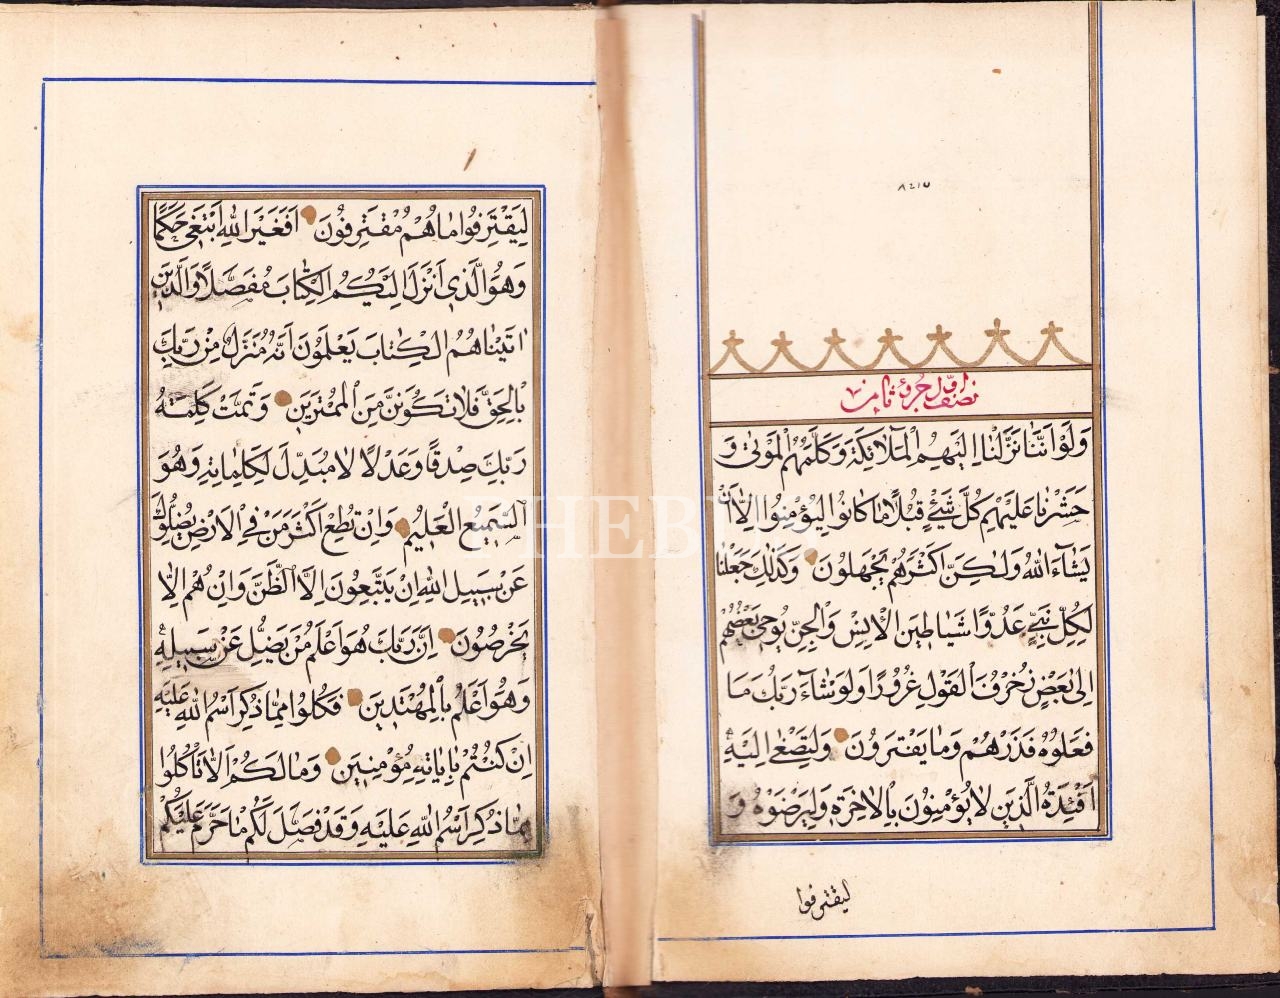 ٨٢١٥
نصف اول جزء ثامن
وَلَوْ اَنَّنَا نَزَّلْنَا اِلَيْهِمُ الْمَلَائِكَةَ وَكَلَّمَهُمُ الْمَوْتٰى وَ
حَشَرْنَا عَلَيْهِمْ كُلَّ شَيْءٍ قُبُلًا مَا كَانُوا لِيُؤْمِنُوا اِلَّا اَنْ
يَشَاءَ اللّٰهُ وَلٰكِنَّ اَكْثَرَهُمْ يَجْهَلُونَ وَكَذٰلِكَ جَعَلْنَا
لِكُلِّ نَبِيٍّ عَدُوًّا شَيَاطِينَ الْاِنْسِ وَالْجِنِّ يُوحِي بَعْضُهُمْ
اِلٰى بَعْضٍ زُخْرُفَ الْقَوْلِ غُرُورًا وَلَوْ شَاءَ رَبُّكَ مَا
فَعَلُوهُ فَذَرْهُمْ وَمَا يَفْتَرُونَ وَلِتَصْغٰى اِلَيْهِ
اَفْئِدَةُ الَّذِينَ لَا يُؤْمِنُونَ بِالْاٰخِرَةِ وَلِيَرْضَوْهُ وَ
ليقترفوا
لِيَقْتَرِفُوا مَا هُمْ مُقْتَرِفُونَ اَفَغَيْرَ اللّٰهِ اَبْتَغِي حَكَمًا
وَهُوَ الَّذِي اَنْزَلَ اِلَيْكُمُ الْكِتَابَ مُفَصَّلًا وَالَّذِينَ
اٰتَيْنَاهُمُ الْكِتَابَ يَعْلَمُونَ اَنَّهُ مُنَزَّلٌ مِنْ رَبِّكَ
بِالْحَقِّ فَلَا تَكُونَنَّ مِنَ الْمُمْتَرِينَ وَتَمَّتْ كَلِمَتُ
رَبِّكَ صِدْقًا وَعَدْلًا لَا مُبَدِّلَ لِكَلِمَاتِهِ وَهُوَ
السَّمِيعُ الْعَلِيمُ وَاِنْ تُطِعْ اَكْثَرَ مَنْ فِي الْاَرْضِ يُضِلُّوكَ
عَنْ سَبِيلِ اللّٰهِ اِنْ يَتَّبِعُونَ اِلَّا الظَّنَّ وَاِنْ هُمْ اِلَّا
يَخْرُصُونَ اِنَّ رَبَّكَ هُوَ اَعْلَمُ مَنْ يَضِلُّ عَنْ سَبِيلِهِ
وَهُوَ اَعْلَمُ بِالْمُهْتَدِينَ فَكُلُوا مِمَّا ذُكِرَ اسْمُ اللّٰهِ عَلَيْهِ
اِنْ كُنْتُمْ بِاٰيَاتِهِ مُؤْمِنِينَ وَمَا لَكُمْ اَلَّا تَأْكُلُوا
مِمَّا ذُكِرَ اسْمُ اللّٰهِ عَلَيْهِ وَقَدْ فَصَّلَ لَكُمْ مَا حَرَّمَ عَلَيْكُمْ